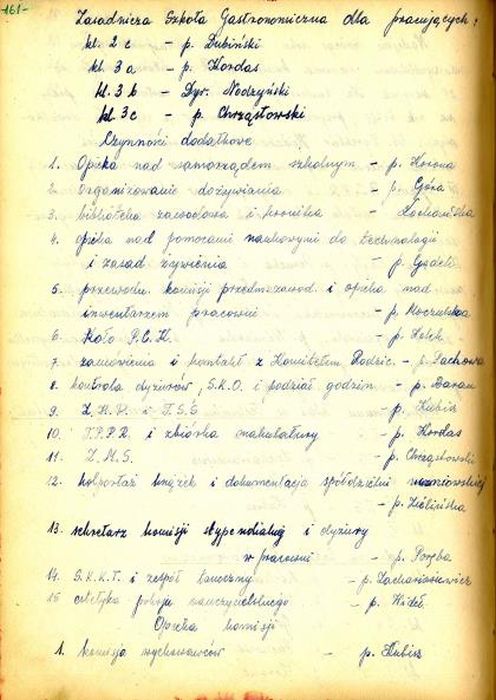 -161-
Zasadnicza Szkoła Gastronomiczna dla pracujących:
kl. 2 c - p. Dubiński
kl. 3 a - p. Kordas
kl. 3 b - Dyr. Nodzyński
kl. 3c - p. Chrząstowski
Czynności dodatkowe
1. Opieka nad samorządem szkolnym - p. Korona
2. Organizowanie dożywiania - p. Góra
3. biblioteka zawodowa i kronika -
4. opieka nad pomocami naukowymi do technologii
i zasad żywienia - p.
5. przewodn. komisji przedm. zawod. i opieka nad
inwentarzem pracowni - p. Moczulska
6. Koło P.C.K. - p.
7. zamówienia i kontakt z Komitetem Rodzic. - p. Lachowa
8. kontrola dyżurów, S.K.O. i podział godzin - p. Baran
9. Z.H.P. i T.S.S - p. Kubisz
10. T.P.P.R. i zbiórka makulatury - p. Kordas
11. Z.M.S. - p. Chrząstowski
12. kolportaż książek i dokumentacja spółdzielni uczniowskiej
- p. Zielińska
13. sekretarz komisji stypendialnej i dyżury
w pracowni - p. Poręba
14. S.K.K.T. i zespół taneczny - p. Zachariasiewicz
15 estetyka pokoju nauczycielskiego - p. Wideł.
Opieka komisji
1. komisja wychowawców - p. Kubisz